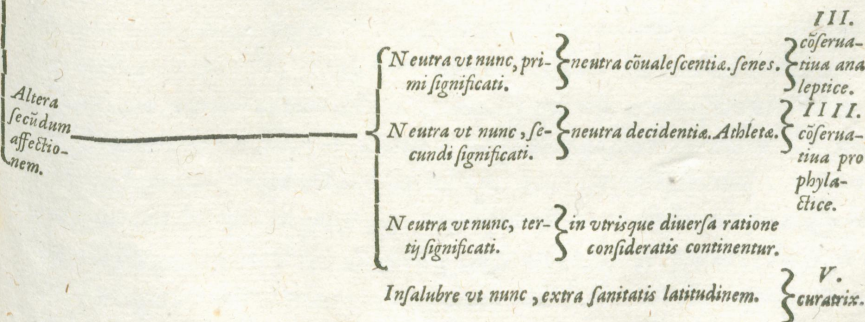 Altera
ſecũdum
affectio-
nem.
Neutra vt nunc, pri-
mi ſignificati.
neutra cõualeſcentiæ. ſenes.
III.
cõſerua-
tiua ana
leptice.
Neutra vt nunc, ſe-
cundi ſignificati.
neutra decidentiæ. Athletæ.
IIII.
cõſerua-
tiua pro
phyla-
ctice.
Neutra vt nunc, ter-
tij ſignificati.
in vtrisque diuerſa ratione
conſideratis continentur.
Inſalubre vt nunc, extra ſanitatis latitudinem.
V.
curatrix.